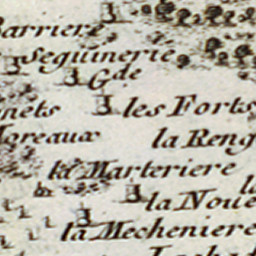 Barriere
Seguinerie
Gde
nets les Forts
Moreaux la Reng
la Marteriere
la Noue
la Mecheniere